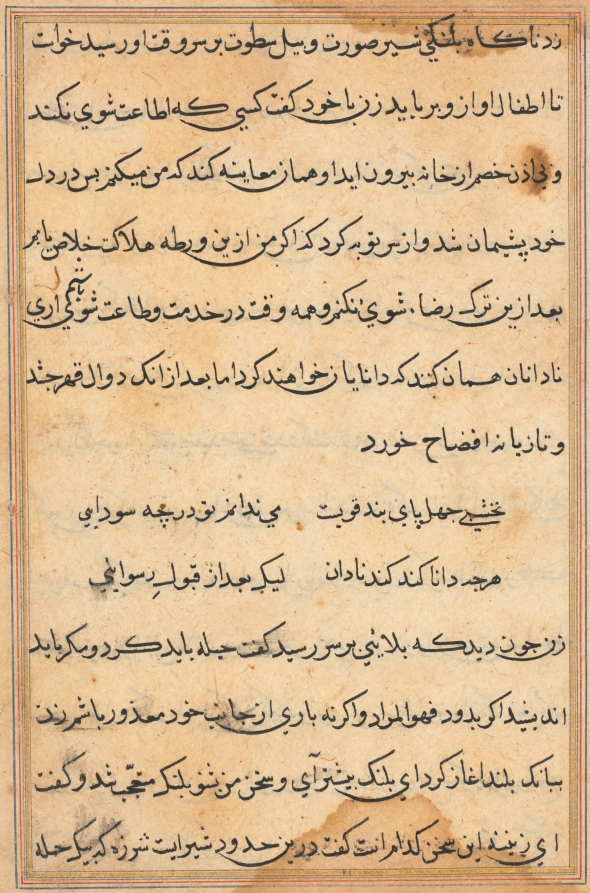 زد ناکاه بلنکی شیر صورت و بیل سطوت بر سر وقت او رسید خواست
تا اطفال او از و برباید زن با خود کفت کسی که اطاعت شوی نکند
و بی اذن خصم از خانه بیرون اید او همان معاینه کند که من میکنم بس در دل
خود پشیمان شد و از سر توبه کرد که اکر من ازین ورطه هلاکت خلاص یابم
بعد ازین ترک رضاء شوی نکنم و همه وقت در خدمت و طاعت شوی باشم اری
نادانان همان کنند که دانایان خواهند کرد اما بعد از انک دوال قهر جشد
و تازیانه افضاح خورد
نخشبی جهل پای بند قویست می ندانم تو در چه سودایی
هرجه دانا کند کند نادان لیک بعد از قبول رسوایی
زن جون دید که بلائی بر سر رسید کفت حیله باید کرد و مکر باید
اندیشید اکر بدود فهو المراد و اکرنه باری از جانب خود معذور باشم زن
ببانک بلند اغاز کرد ای بلنک بیشتر آی و سخن من شنو بلنک متعجّب شد و کفت
ای زنینه این سخن کدام است کفت درین حدود شیریست شرزه که بیک حمله